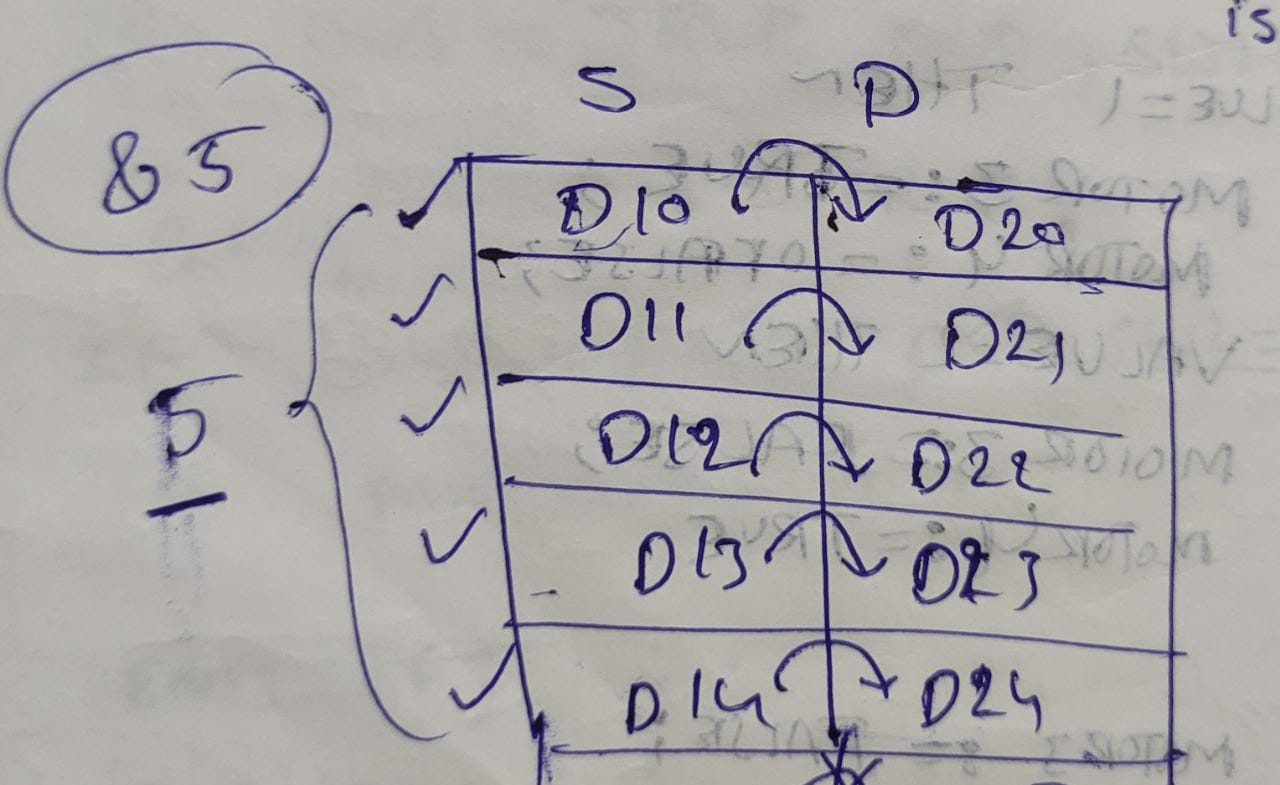 is
S D
& 5
D10 D20
D11 D21
5
D12 D22
D13 D23
D14 D24